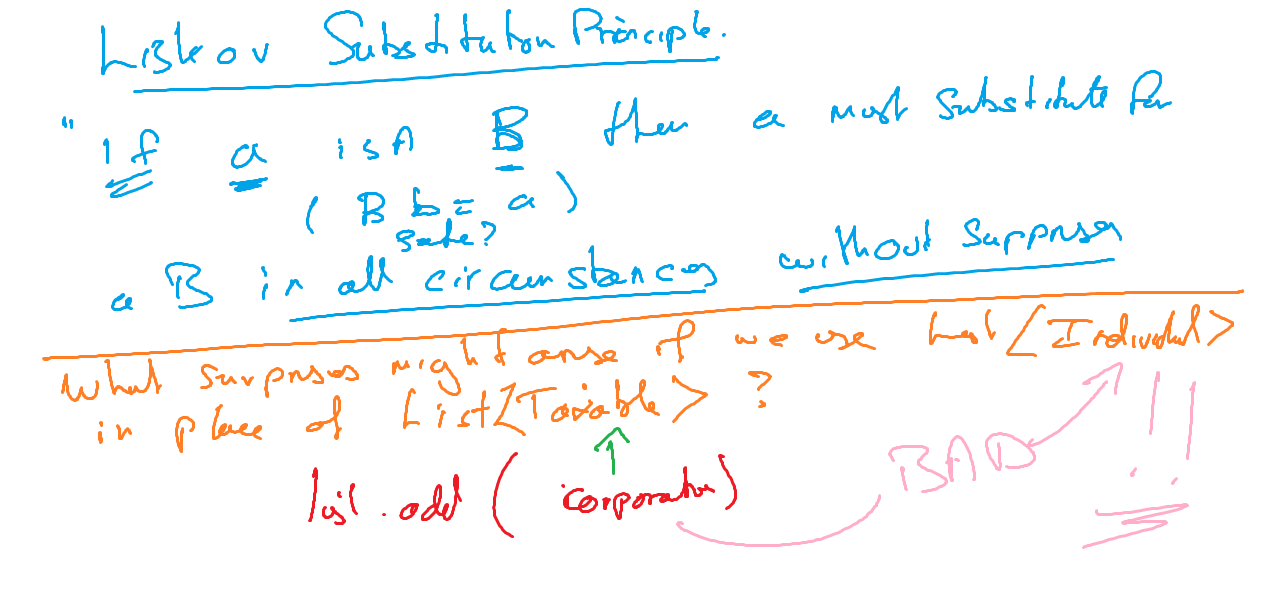 Liskov Substitution Principle.
" If a isA B then a must substitute for
( B b = a )
safe?
a B in all circumstances without surprises
What surprises might arise if we use List<Individual>
in place of List<Taxable> ?
list.add ( corporation )
BAD !!